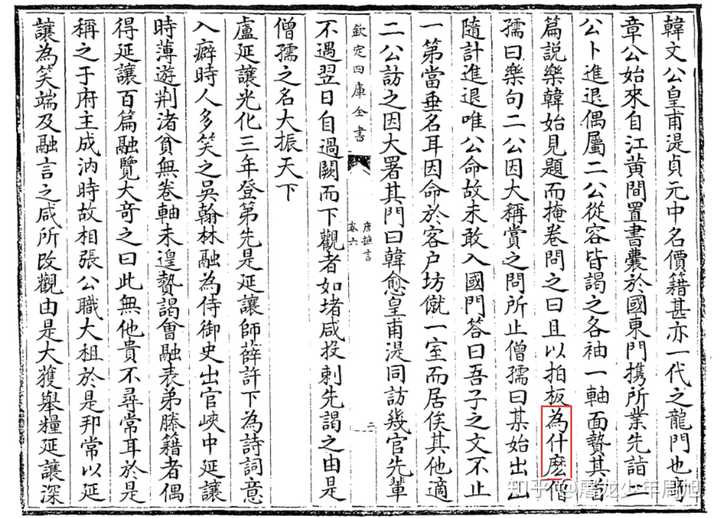 韓文公皇甫湜貞元中名價籍甚亦一代之龍門也奇
章公始來自江黃間置書囊於國東門攜所業先詣二
公卜進退偶屬二公從容皆謁之各袖一軸面贄其首
篇說樂韓始見題而掩卷問之曰且以拍板為什麽僧
孺曰樂句二公因大稱賞之問所止僧孺曰某始出山
隨計進退唯公命故未敢入國門答曰吾子之文不止
一第當垂名耳因命於客户坊僦一室而居俟其他適
二公訪之因大署其門曰韓愈皇甫湜同訪幾官先輩
欽定四庫全書
唐摭言
卷六
二
不遇翌日自過闕而下觀者如堵咸投刺先謁之由是
僧孺之名大振天下
盧延讓光化三年登第先是延讓師薛許下為詩詞意
入癖時人多笑之吳翰林融為侍御史出官峽中延讓
時薄遊荆渚貧無卷軸未遑贄謁會融表弟滕籍者偶
得延讓百篇融覽大奇之曰此無他貴不尋常耳於是
稱之于府主成汭時故相張公職大租於是邦常以延
讓為笑端及融言之咸所改觀由是大獲舉糧延讓深
知乎 @龙少年周旭